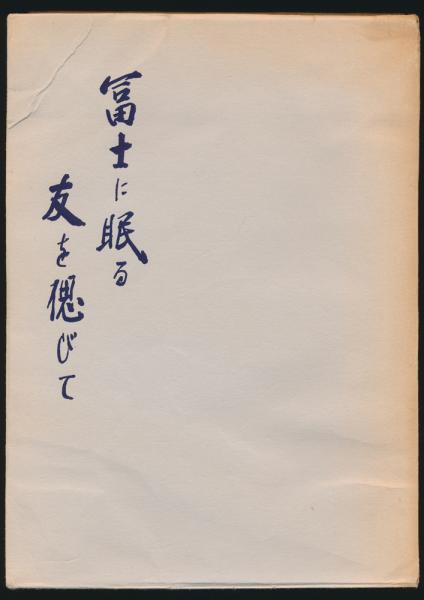 冨士に眠る
友を偲びて